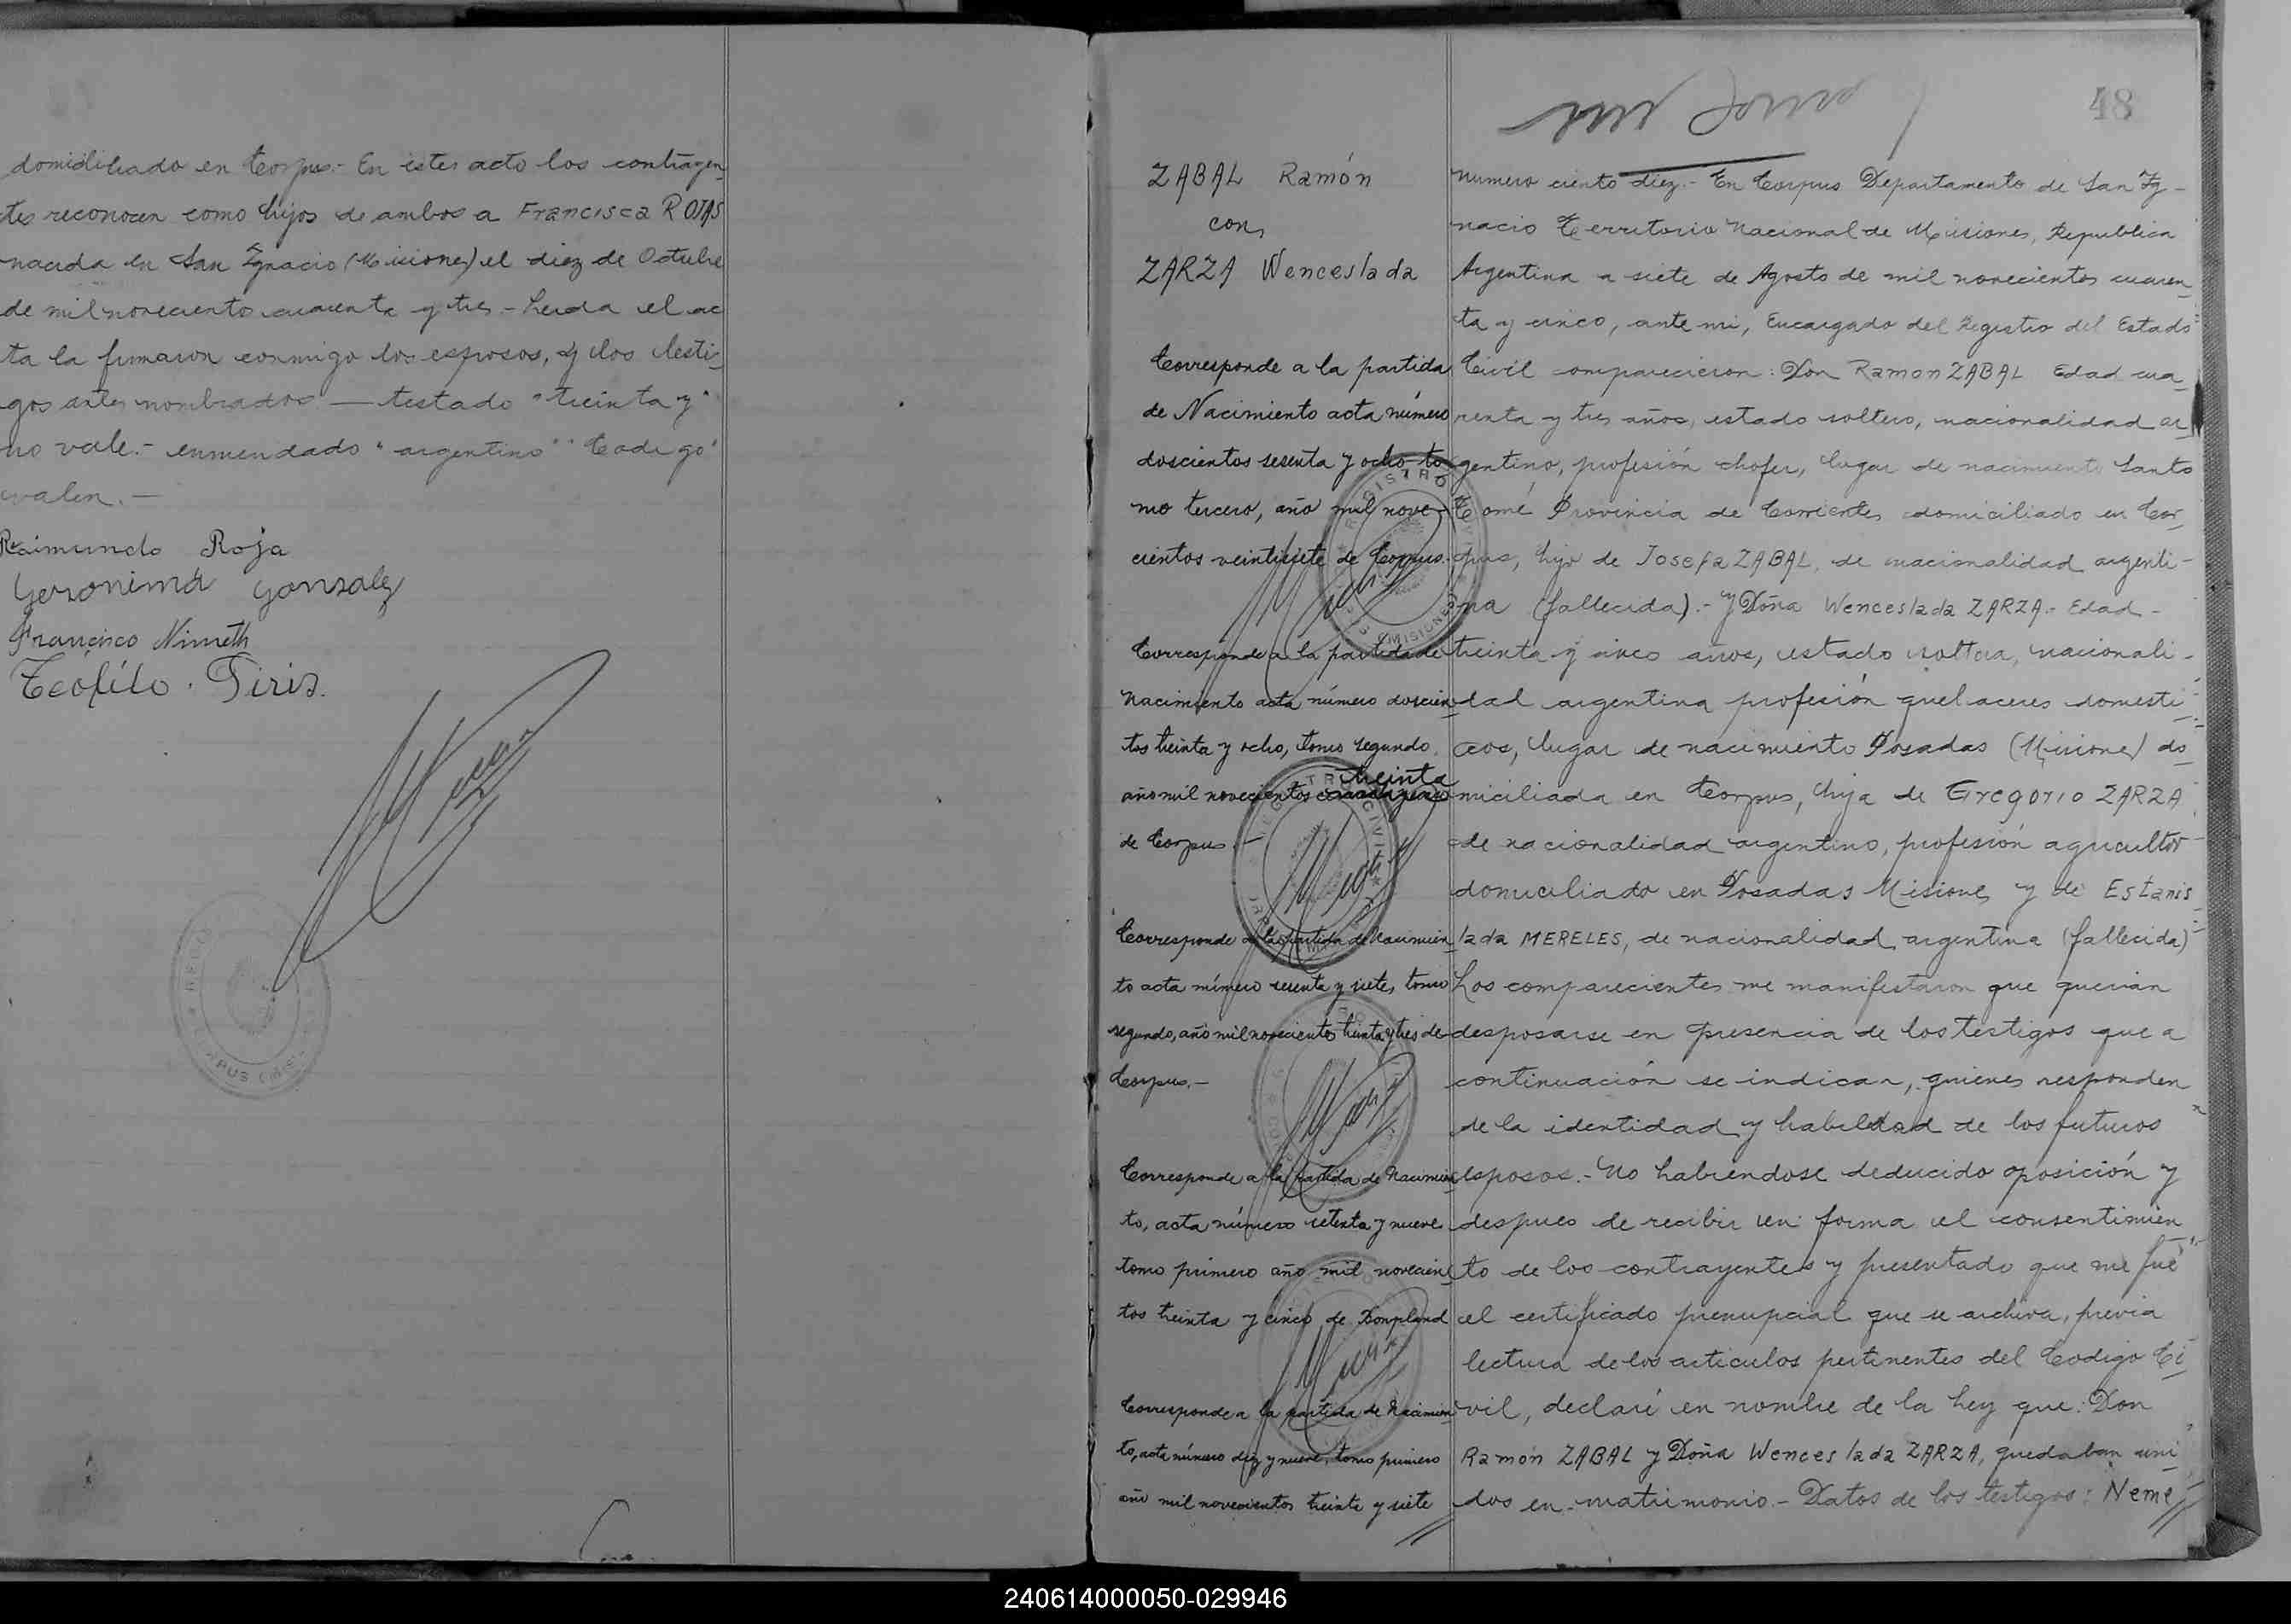 domiciliado en Corpus.- En este acto los contrayen
tes reconocen como hijos de ambos a Francisca ROJAS
nacida en San Ignacio (Misiones) el diez de Octubre
de mil novecientos cuarenta y tres - Leida el ac
ta la firmaron conmigo los esposos, y los testi_
gos antes nombrados — testado "treinta y"
no vale.- enmendado "argentino" "Codigo"
valen.—
Raimundo Roja
Geronima Gonzalez
Francisco Nimeth
Teófilo. Piris.
48
ZABAL Ramón
con
ZARZA Wenceslada
Corresponde a la partida
de Nacimiento acta número
doscientos sesenta y ocho to
mo tercero, año mil nove-
cientos veintisiete de Corpus.
Corresponde a la partida de
Nacimiento acta número doscien_
tos treinta y ocho, tomo segundo
treinta
año mil novecientos
de Corpus.-
Corresponde a la partida de Nacimien_
to acta número sesenta y siete, tomo
segundo, año mil novecientos treinta y tres de
Corpus.-
Corresponde a la partida de Nacimien_
to, acta número setenta y nueve
tomo primero año mil novecien_
tos treinta y cinco de Bonpland
Corresponde a la partida de Nacimien
to, acta número diez y nueve, tomo primero
año mil novecientos treinta y siete
numero ciento diez.- En Corpus Departamento de San Ig-
nacio Territorio Nacional de Misiones, Republica
Argentina a siete de Agosto de mil novecientos cuaren_
ta y cinco, ante mi, Encargado del Registro del Estado
Civil comparecieron: Don Ramon ZABAL Edad cua_
renta y tres años, estado soltero, nacionalidad ar_
gentino, profesión chofer, lugar de nacimiento Santo
Tomé Provincia de Corrientes domiciliado en Cor_
pus, hijo de Josefa ZABAL, de nacionalidad argenti-
na (fallecida).- Y Doña Wenceslada ZARZA.- Edad -
treinta y cinco años, estado soltera, nacionali-
dad argentina profesión quehaceres domesti_
cos, lugar de nacimiento Posadas (Misiones) do_
miciliada en Corpus, hija de Gregorio ZARZA
de nacionalidad argentino, profesión agricultor
domiciliado en Posadas Misiones y de Estanis_
lada MERELES, de nacionalidad argentina (fallecida)
Los comparecientes me manifestaron que querian
desposarse en presencia de los testigos que a
continuación se indican, quienes responden
de la identidad y habilidad de los futuros
esposos.- No habiendose deducido oposición y
despues de recibir en forma el consentimien_
to de los contrayentes y presentado que me fué
el certificado prenupcial que se archiva, previa
lectura de los articulos pertinentes del Codigo Ci_
vil, declaré en nombre de la Ley que: Don
Ramón ZABAL y Doña Wenceslada ZARZA, quedaban uni_
dos en matrimonio.- Datos de los testigos: Neme
240614000050-029946